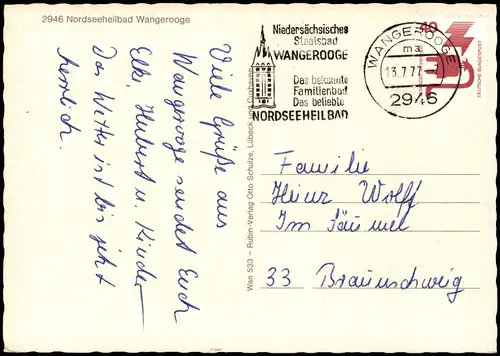 2946 Nordseeheilbad Wangerooge
Viele Grüße aus
Wangerooge sendet Euch
Elke Hubert u. Kinder
Das Wetter ist bis jetzt
herrlich.
Wan 533 - Rubin-Verlag Otto Schulze, Lübeck und Cuxhaven
Niedersächsisches
Staatsbad
WANGEROOGE
Das bekannte
Familienbad
Das beliebte
NORDSEEHEILBAD
WANGEROOGE
ma
13.7.77-7
2946
40
DEUTSCHE BUNDESPOST
Familie
Heinz Wolff
Im
33 Braunschweig